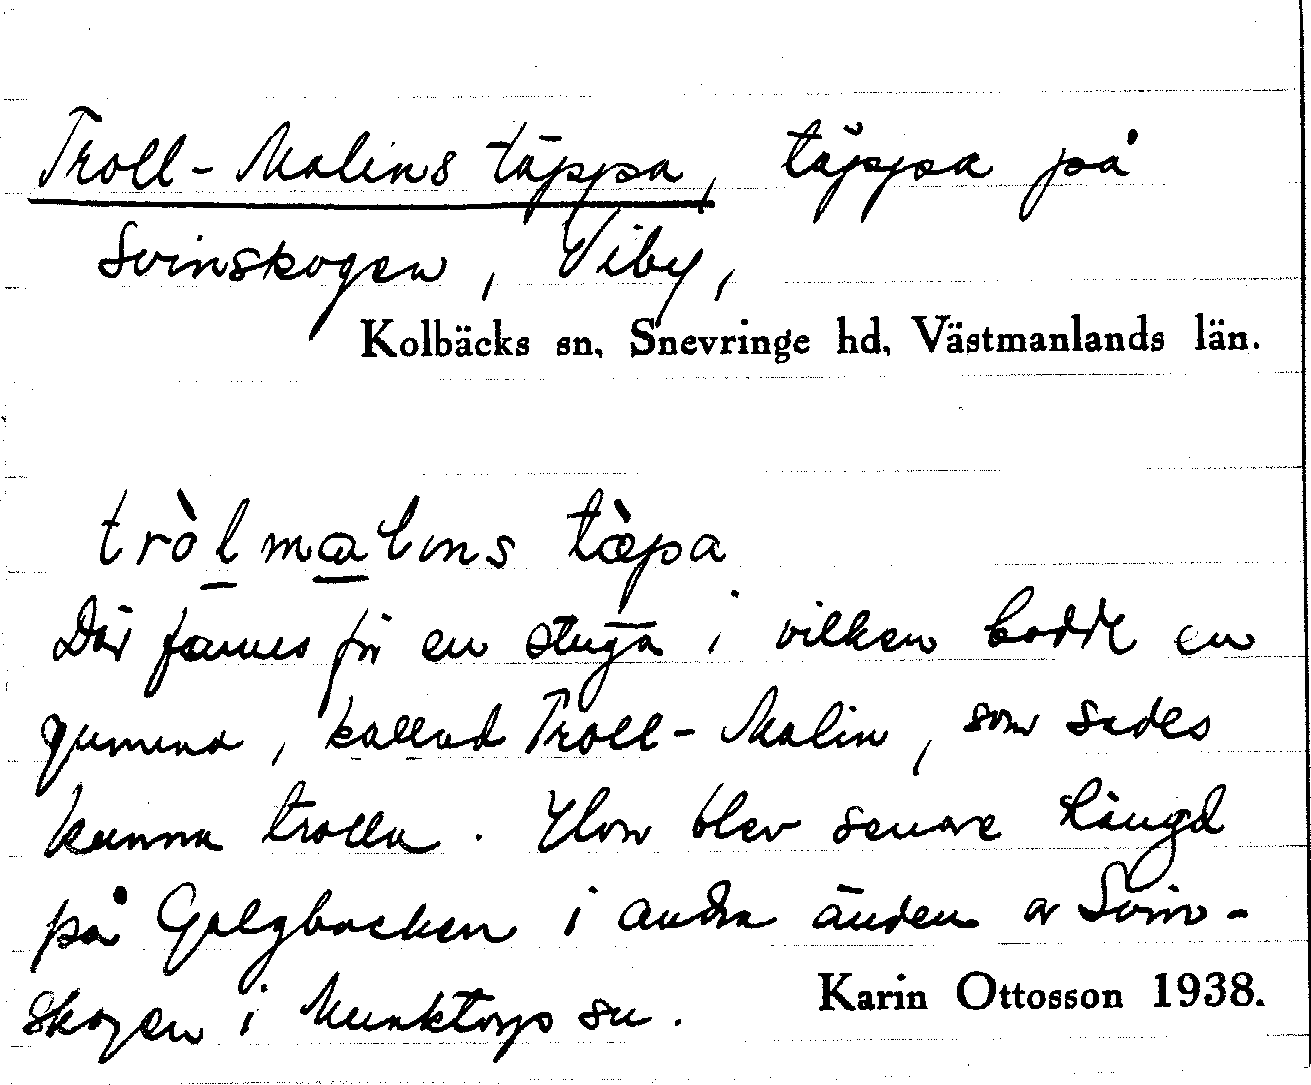 Troll-Malins täppa, täppa på
Svinskogen, Viby,
Kolbäcks sn, Snevringe hd, Västmanlands län.
tròlmalıns tæ̀pa
Där fannes förr en stuga i vilken bodde en
gumma, kallad Troll-Malin, som sades
kunna trolla. Hon blev senare hängd
på Galgbacken i andra änden av Svin-
skogen i Munktorps sn.
Karin Ottosson 1938.